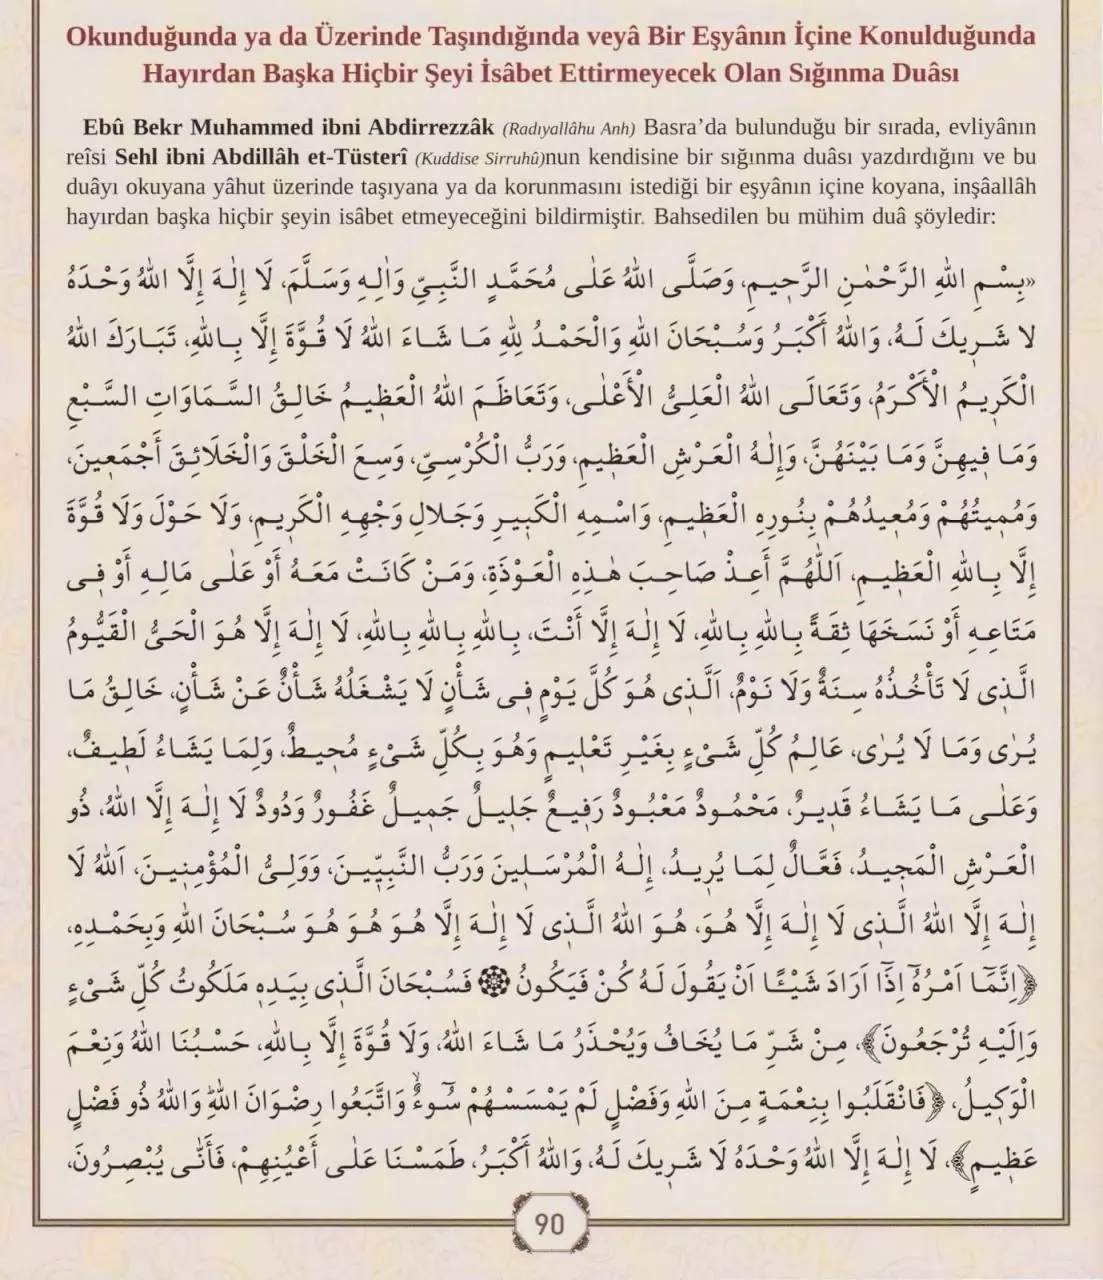 Okunduğunda ya da Üzerinde Taşındığında veyâ Bir Eşyânın İçine Konulduğunda
Hayırdan Başka Hiçbir Şeyi İsâbet Ettirmeyecek Olan Sığınma Duâsı
Ebû Bekr Muhammed ibni Abdirrezzâk (Radıyallâhu Anh) Basra’da bulunduğu bir sırada, evliyânın
reîsi Sehl ibni Abdillâh et-Tüsterî (Kuddise Sirruhû)nun kendisine bir sığınma duâsı yazdırdığını ve bu
duâyı okuyana yâhut üzerinde taşıyana ya da korunmasını istediği bir eşyânın içine koyana, inşâallâh
hayırdan başka hiçbir şeyin isâbet etmeyeceğini bildirmiştir. Bahsedilen bu mühim duâ şöyledir:
«بِسْمِ اللهِ الرَّحْمٰنِ الرَّحِيمِ، وَصَلَّى اللهُ عَلٰى مُحَمَّدٍ النَّبِيِّ وَاٰلِهِ وَسَلَّمَ، لَا إِلٰهَ إِلَّا اللهُ وَحْدَهُ
لَا شَرِيكَ لَهُ، وَاللهُ أَكْبَرُ وَسُبْحَانَ اللهِ وَالْحَمْدُ لِلهِ مَا شَاءَ اللهُ لَا قُوَّةَ إِلَّا بِاللهِ، تَبَارَكَ اللهُ
الْكَرِيمُ الْأَكْرَمُ، وَتَعَالَى اللهُ الْعَلِىُّ الْأَعْلٰى، وَتَعَاظَمَ اللهُ الْعَظِيمُ خَالِقُ السَّمَاوَاتِ السَّبْعِ
وَمَا فِيهِنَّ وَمَا بَيْنَهُنَّ، وَإِلٰهُ الْعَرْشِ الْعَظِيمِ، وَرَبُّ الْكُرْسِيِّ، وَسِعَ الْخَلْقَ وَالْخَلَائِقَ أَجْمَعِينَ،
وَمُمِيتُهُمْ وَمُعِيدُهُمْ بِنُورِهِ الْعَظِيمِ، وَاسْمِهِ الْكَبِيرِ وَجَلَالِ وَجْهِهِ الْكَرِيمِ، وَلَا حَوْلَ وَلَا قُوَّةَ
إِلَّا بِاللهِ الْعَظِيمِ، اَللّٰهُمَّ أَعِذْ صَاحِبَ هٰذِهِ الْعَوْذَةِ، وَمَنْ كَانَتْ مَعَهُ أَوْ عَلٰى مَالِهِ أَوْ فِى
مَتَاعِهِ أَوْ نَسَخَهَا ثِقَةً بِاللهِ بِاللهِ، لَا إِلٰهَ إِلَّا أَنْتَ، بِاللهِ بِاللهِ بِاللهِ، لَا إِلٰهَ إِلَّا هُوَ الْحَىُّ الْقَيُّومُ
الَّذِى لَا تَأْخُذُهُ سِنَةٌ وَلَا نَوْمٌ، اَلَّذِى هُوَ كُلَّ يَوْمٍ فِى شَأْنٍ لَا يَشْغَلُهُ شَأْنٌ عَنْ شَأْنٍ، خَالِقُ مَا
يُرٰى وَمَا لَا يُرٰى، عَالِمُ كُلِّ شَىْءٍ بِغَيْرِ تَعْلِيمٍ وَهُوَ بِكُلِّ شَىْءٍ مُحِيطٌ، وَلِمَا يَشَاءُ لَطِيفٌ،
وَعَلٰى مَا يَشَاءُ قَدِيرٌ، مَحْمُودٌ مَعْبُودٌ رَفِيعٌ جَلِيلٌ جَمِيلٌ غَفُورٌ وَدُودٌ لَا إِلٰهَ إِلَّا اللهُ، ذُو
الْعَرْشِ الْمَجِيدُ، فَعَّالٌ لِمَا يُرِيدُ، إِلٰهُ الْمُرْسَلِينَ وَرَبُّ النَّبِيِّينَ، وَوَلِىُّ الْمُؤْمِنِينَ، اَللهُ لَا
إِلٰهَ إِلَّا اللهُ الَّذِى لَا إِلٰهَ إِلَّا هُوَ، هُوَ اللهُ الَّذِى لَا إِلٰهَ إِلَّا هُوَ هُوَ هُوَ سُبْحَانَ اللهِ وَبِحَمْدِهِ،
﴿اِنَّمَٓا اَمْرُهُٓ اِذَٓا اَرَادَ شَيْـًٔا اَنْ يَقُولَ لَهُ كُنْ فَيَكُونُ ۞ فَسُبْحَانَ الَّذِى بِيَدِهِ مَلَكُوتُ كُلِّ شَىْءٍ
وَاِلَيْهِ تُرْجَعُونَ﴾، مِنْ شَرِّ مَا يُخَافُ وَيُحْذَرُ مَا شَاءَ اللهُ، وَلَا قُوَّةَ إِلَّا بِاللهِ، حَسْبُنَا اللهُ وَنِعْمَ
الْوَكِيلُ، ﴿فَانْقَلَبُوا بِنِعْمَةٍ مِنَ اللهِ وَفَضْلٍ لَمْ يَمْسَسْهُمْ سُٓوءٌۙ وَاتَّبَعُوا رِضْوَانَ اللهِۜ وَاللهُ ذُو فَضْلٍ
عَظِيمٍ﴾، لَا إِلٰهَ إِلَّا اللهُ وَحْدَهُ لَا شَرِيكَ لَهُ، وَاللهُ أَكْبَرُ، طَمَسْنَا عَلٰى أَعْيُنِهِمْ، فَأَنّٰى يُبْصِرُونَ،
90